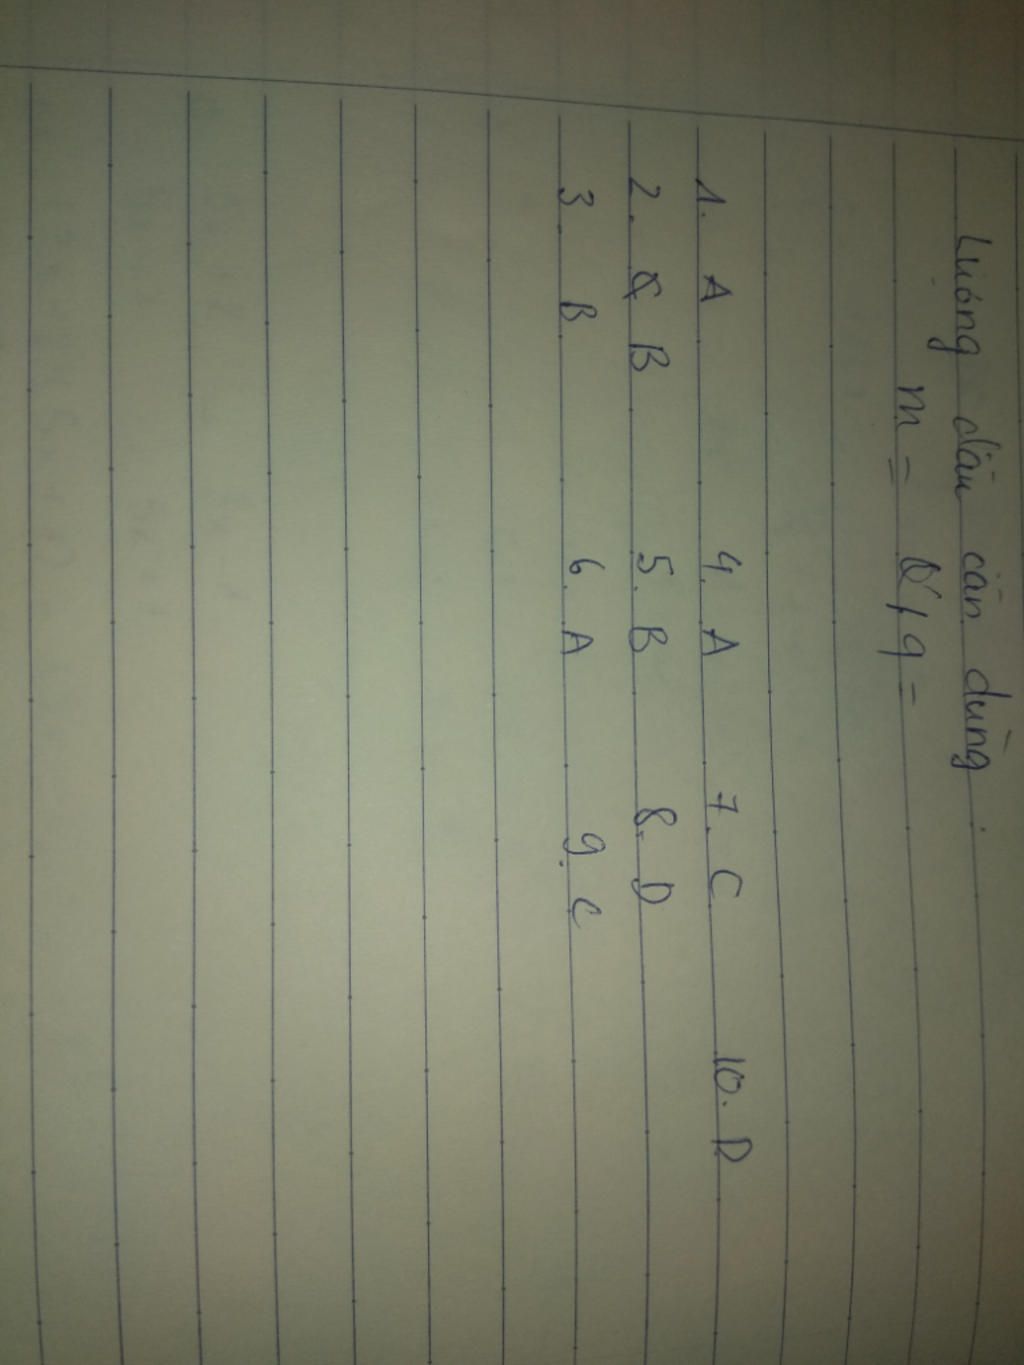 Lượng dầu cần dùng.
m = Q' / q =
1. A 4. A 7. C 10. D
2. B 5. B 8. D
3. B 6. A 9. C